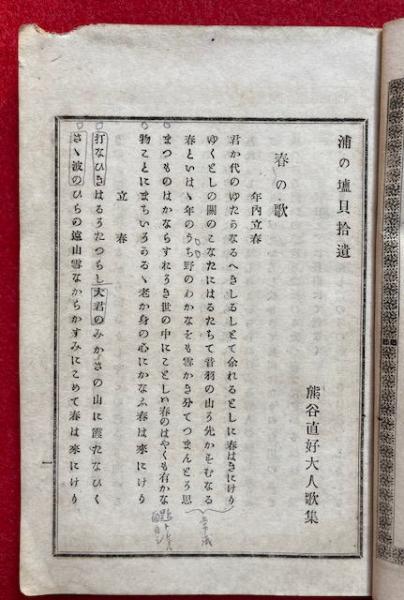 浦の塩貝拾遺
熊谷直好大人歌集
春の歌
年内立春
君か代のゆたかなるへきしるしとて余れるとしに春はきにけり
ゆくとしの關のこなたにはるたちて音羽の山そ先かすむなる
春といはゝ年のうち野のわかなをも雪かき分てつまんとそ思
まつものはかならすれうき世の中にことしい春のはやくも有かな
物ことにまちいろあるゝ老か身の心にかなふ春は來にけり
立春
打なひきはるうたつらし大君のみかさの山に霞たなひく
さゝ波のひらの遠山雪なからかすみにこめて春は來にけり
一